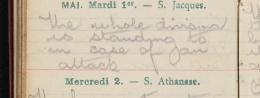 MAI. Mardi 1er. — S. Jacques.
The whole division
is standing to
in case of
attack
Mercredi 2. — S. Athanase.